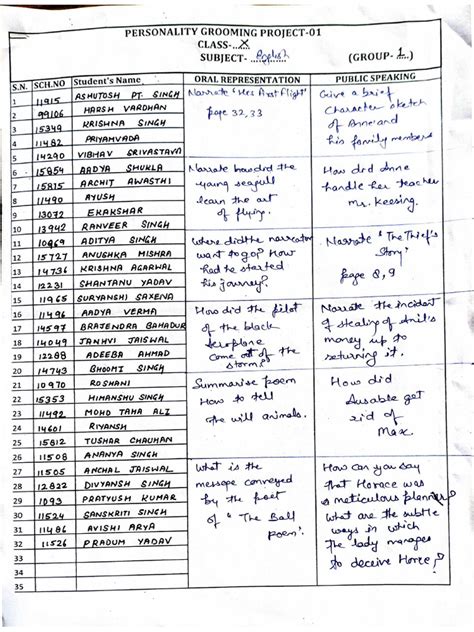 PERSONALITY GROOMING PROJECT-01
CLASS-...X...
SUBJECT- ...English (GROUP-...1...)
S.N. SCH.NO Student's Name ORAL REPRESENTATION PUBLIC SPEAKING
1 11915 ASHUTOSH PT. SINGH
2 99106 HARSH VARDHAN
3 15349 KRISHNA SINGH
4 11482 PRIYAMVADA
5 14290 VIBHAV SRIVASTAVA
Narrate 'His First Flight'
page 32,33
Give a brief
Character sketch
of Anne and
his family members
6 15854 AADYA SHUKLA
7 15815 ARCHIT AWASTHI
8 11490 AYUSH
9 13072 EKAKSHAR
10 13942 RANVEER SINGH
Narrate how did the
young seagull
learn the art
of flying.
How did Anne
handle her teacher
Mr. Keesing.
11 10969 ADITYA SINGH
12 15727 ANUSHKA MISHRA
13 14736 KRISHNA AGARWAL
14 12231 SHANTANU YADAV
15 11965 SURYANSHI SAXENA
Where did the narrator
want to go? How
had he started
his journey?
Narrate 'The Thief's
Story'
page 8,9
16 11496 AADYA VERMA
17 14597 BRAJENDRA BAHADUR
18 14049 JANHVI JAISWAL
19 12288 ADEEBA AHMAD
20 14743 BHOOMI SINGH
How did the pilot
of the black
aeroplane
come out of the
storm?
Narrate the incident
of stealing of Anil's
money up to
returning it.
21 10970 ROSHANI
22 15353 HIMANSHU SINGH
23 11492 MOHD TAHA ALI
24 14601 RIYANSH
25 15812 TUSHAR CHAUHAN
Summarise poem
How to tell
the will animals.
How did
Ausable get
rid of
Max
26 11508 ANANYA SINGH
27 11505 ANCHAL JAISWAL
28 12822 DIVYANSH SINGH
29 1093 PRATYUSH KUMAR
30 11524 SANSKRITI SINGH
31 11486 AVISHI ARYA
32 11526 PRADUM YADAV
33
34
35
What is the
message conveyed
by the poet
of "The Ball
poem'.
How can you say
that Horace was
meticulous planner?
what are the subtle
ways in which
the lady manages
to deceive Horce?